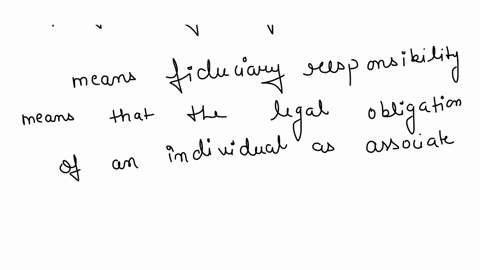 means fiduciary responsibility
means that the legal obligation
of an individual as associate